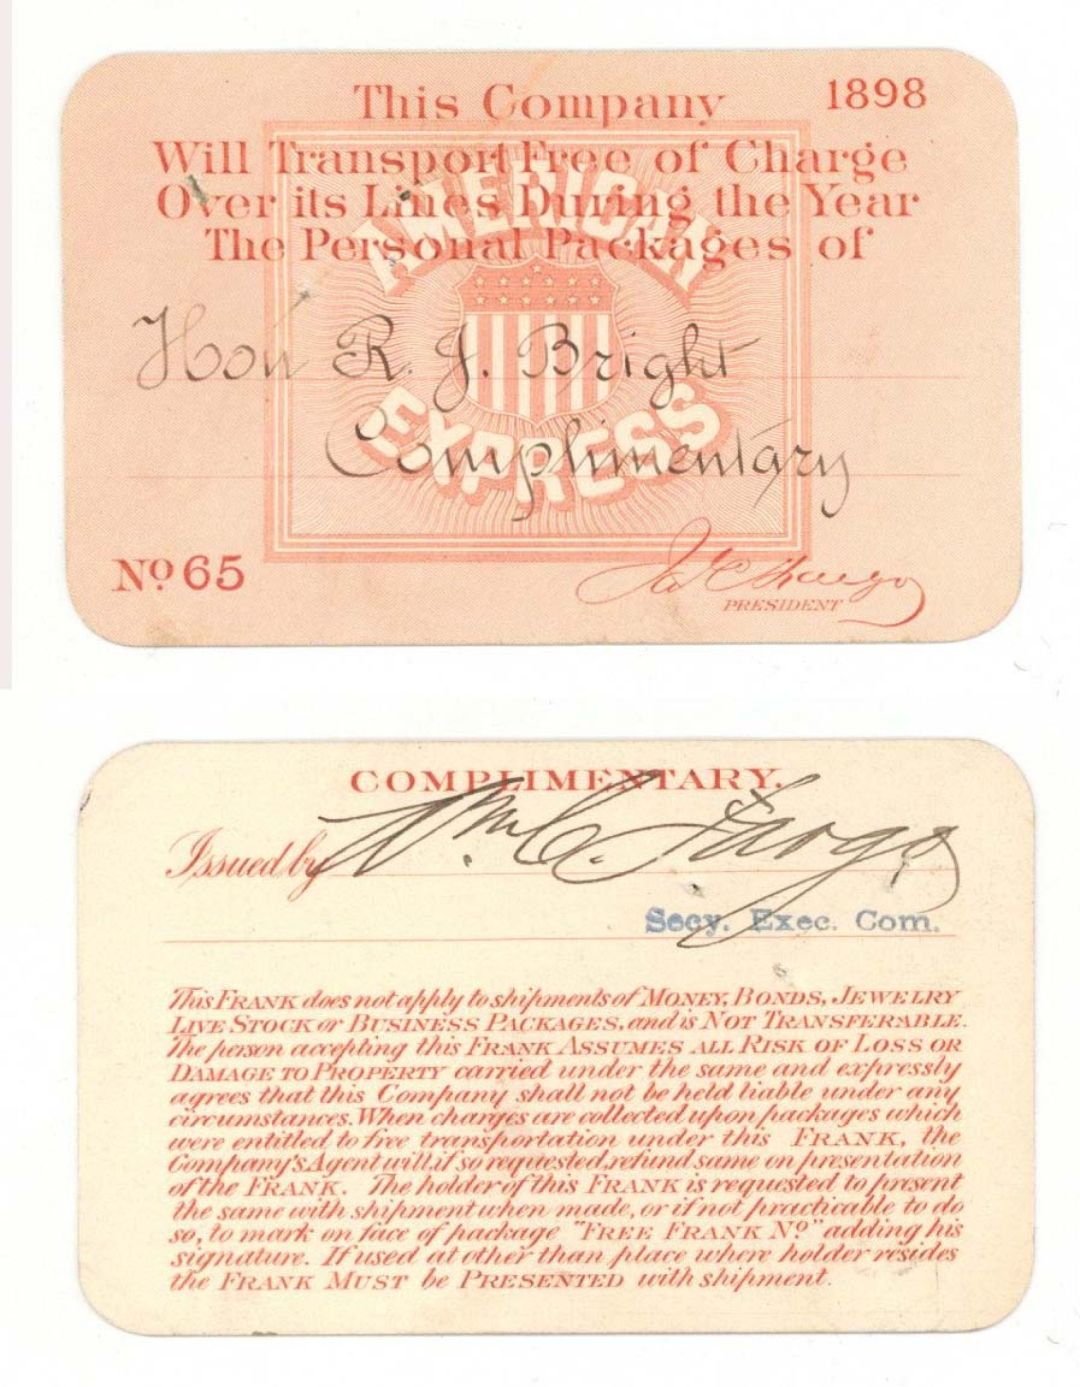 This Company 1898
Will Transport Free of Charge
Over its Lines During the Year
The Personal Packages of
AMERICAN
EXPRESS
Hon R. J. Bright
Complimentary
No 65
Jas C Fargo
PRESIDENT
COMPLIMENTARY.
Issued by Wm. C. Fargo
Secy. Exec. Com.
This FRANK does not apply to shipments of MONEY, BONDS, JEWELRY
LIVE STOCK or BUSINESS PACKAGES, and is NOT TRANSFERABLE.
The person accepting this FRANK ASSUMES ALL RISK OF LOSS OR
DAMAGE TO PROPERTY carried under the same and expressly
agrees that this Company shall not be held liable under any
circumstances. When charges are collected upon packages which
were entitled to free transportation under this FRANK, the
Company's Agent will, if so requested, refund same on presentation
of the FRANK. The holder of this FRANK is requested to present
the same with shipment when made, or if not practicable to do
so, to mark on face of package "FREE FRANK No" adding his
signature. If used at other than place where holder resides
the FRANK MUST be PRESENTED with shipment.